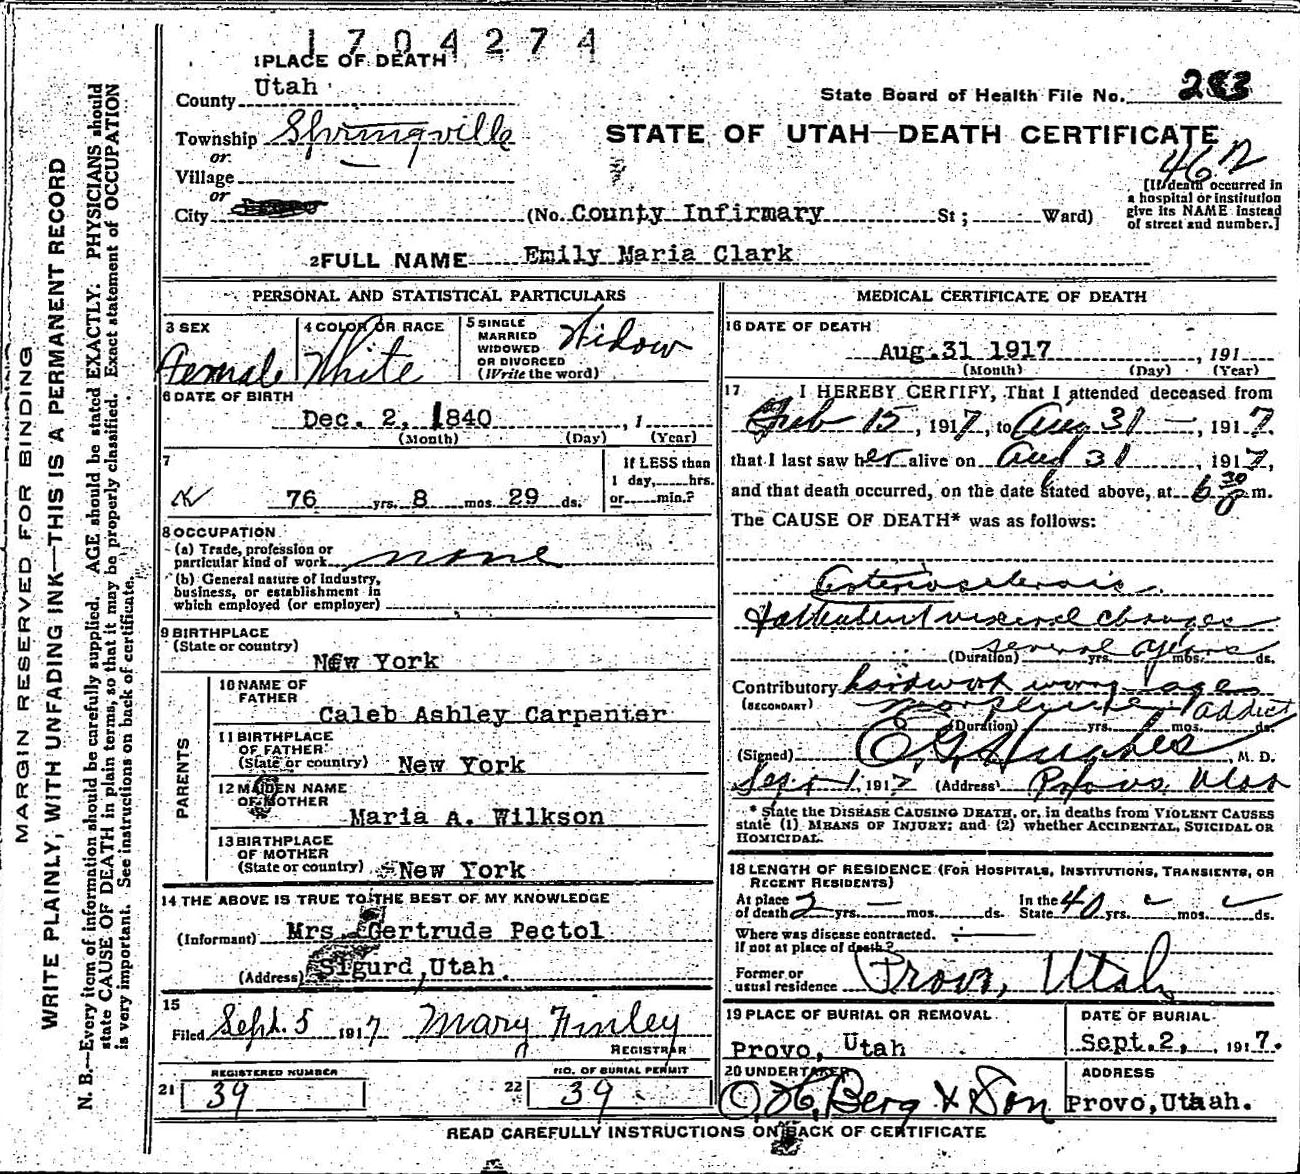 1704274
1 PLACE OF DEATH
County Utah
State Board of Health File No. 283
Township Springville
or
Village
or
City
STATE OF UTAH—DEATH CERTIFICATE
46
(No. County Infirmary St; Ward)
[If death occurred in
a hospital or institution
give its NAME instead
of street and number.]
2 FULL NAME Emily Maria Clark
PERSONAL AND STATISTICAL PARTICULARS
3 SEX
Female
4 COLOR OR RACE
White
5 SINGLE
MARRIED
WIDOWED
OR DIVORCED
(Write the word)
Widow
6 DATE OF BIRTH
Dec. 2, 1840, 1
(Month) (Day) (Year)
7
76 yrs. 8 mos. 29 ds.
If LESS than
1 day, hrs.
or min.?
8 OCCUPATION
(a) Trade, profession or
particular kind of work none
(b) General nature of industry,
business, or establishment in
which employed (or employer)
9 BIRTHPLACE
(State or country)
New York
PARENTS
10 NAME OF
FATHER
Caleb Ashley Carpenter
11 BIRTHPLACE
OF FATHER
(State or country) New York
12 MAIDEN NAME
OF MOTHER
Maria A. Wilkson
13 BIRTHPLACE
OF MOTHER
(State or country) New York
14 THE ABOVE IS TRUE TO THE BEST OF MY KNOWLEDGE
(Informant) Mrs. Gertrude Pectol
(Address) Sigurd, Utah.
15
Filed Sept. 5 1917 Mary Finley
REGISTRAR
REGISTERED NUMBER
21 39
NO. OF BURIAL PERMIT
22 39
MEDICAL CERTIFICATE OF DEATH
16 DATE OF DEATH
Aug. 31 1917, 191
(Month) (Day) (Year)
17 I HEREBY CERTIFY, That I attended deceased from
Feb 15, 1917, to Aug 31, 1917,
that I last saw her alive on Aug 31, 1917,
and that death occurred, on the date stated above, at 6 30 P m.
The CAUSE OF DEATH* was as follows:
Arteriosclerosis
& attendent visceral changes
(Duration) several years yrs. mos. ds.
Contributory hard work worry age
(SECONDARY) morphine addict
(Duration) yrs. mos. ds.
(Signed) E. G. Hughes, M. D.
Sept 1, 1917 (Address) Provo, Utah
* State the DISEASE CAUSING DEATH, or, in deaths from VIOLENT CAUSES
state (1) MEANS OF INJURY; and (2) whether ACCIDENTAL, SUICIDAL OR
HOMICIDAL.
18 LENGTH OF RESIDENCE (FOR HOSPITALS, INSTITUTIONS, TRANSIENTS, OR
RECENT RESIDENTS)
At place
of death 2 yrs. — mos. ds.
In the
State 40 yrs. mos. ds.
Where was disease contracted.
If not at place of death?
Former or
usual residence Provo, Utah
19 PLACE OF BURIAL OR REMOVAL
Provo, Utah
DATE OF BURIAL
Sept. 2, , 1917.
20 UNDERTAKER
O, H, Berg & Son
ADDRESS
Provo, Utaah.
READ CAREFULLY INSTRUCTIONS ON BACK OF CERTIFICATE
MARGIN RESERVED FOR BINDING
WRITE PLAINLY, WITH UNFADING INK—THIS IS A PERMANENT RECORD
N. B.—Every item of information should be carefully supplied. AGE should be stated EXACTLY. PHYSICIANS should
state CAUSE OF DEATH in plain terms, so that it may be properly classified. Exact statement of OCCUPATION
is very important. See instructions on back of certificate.